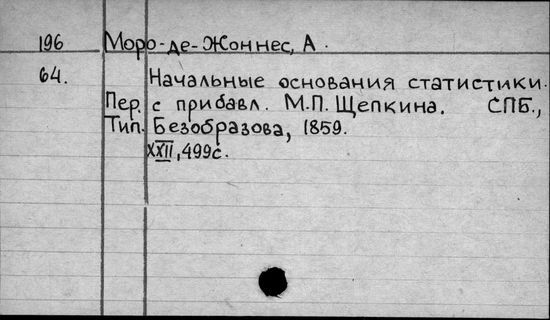 196 Моро-де-Жоннес, А.
64. Начальные основания статистики.
Пер. с прибавл. М.П. Щепкина. СПБ.,
Тип. Безобразова, 1859.
XXII, 499с.